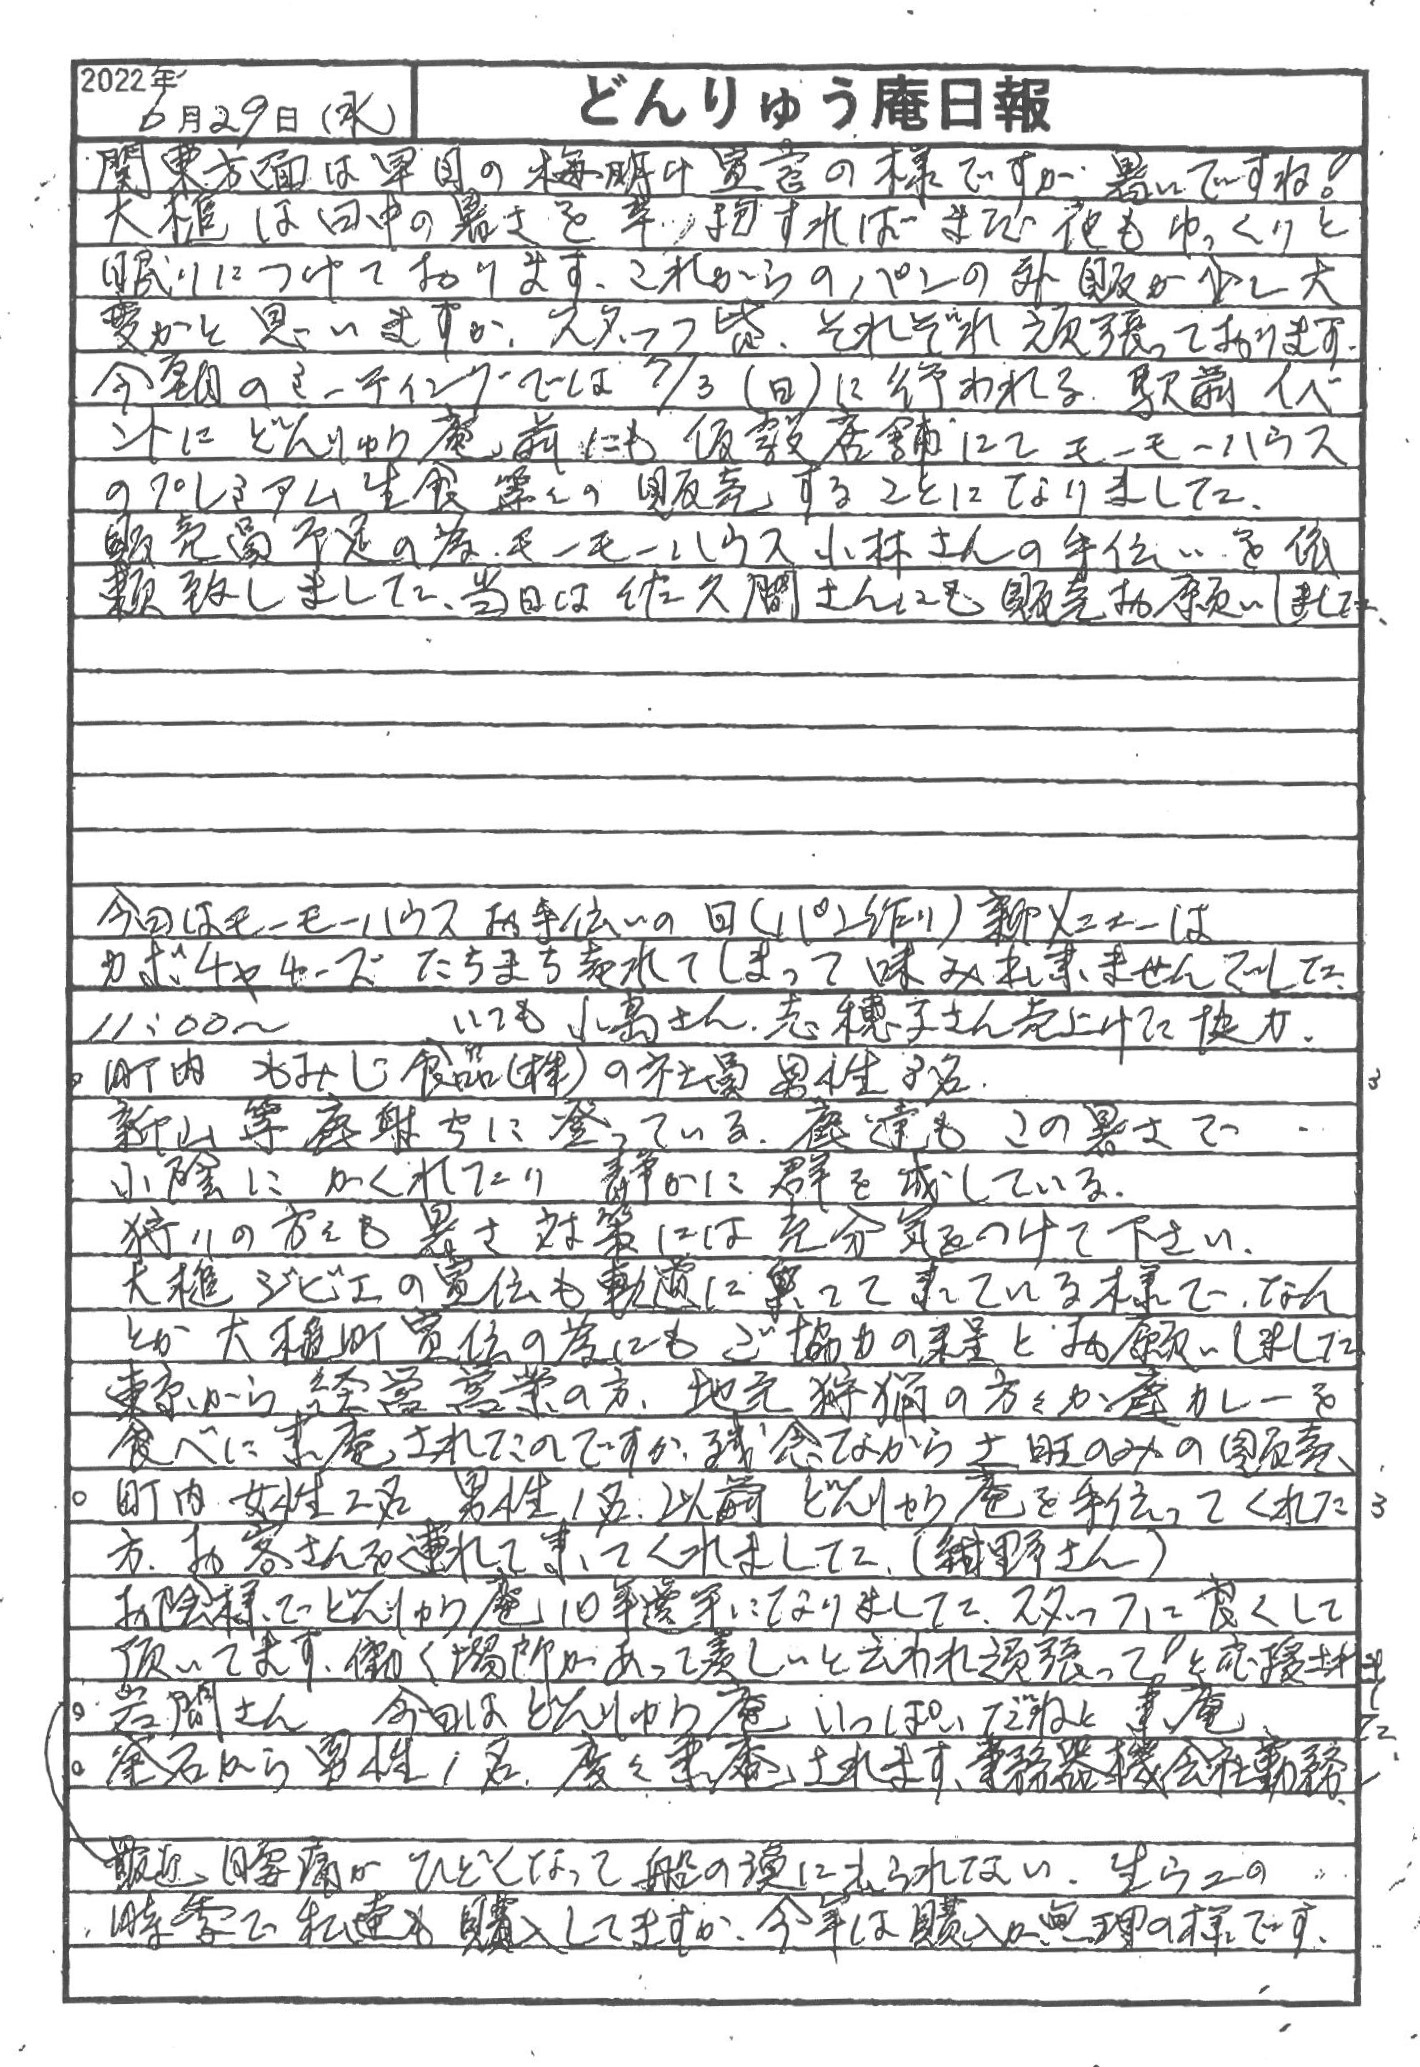 2022年
6月29日(水)
どんりゅう庵日報
関東方面は早目の梅明け宣言の様ですが暑いですね!
大槌は日中の暑さを辛抱すればまだ夜もゆっくりと
眠りにつけております、これからのパンの外販が少し大
変かと思いますが、スタッフ皆、それぞれ頑張っております。
今朝のミーティングでは7/3(日)に行われる駅前イベ
ントにどんりゅう庵前にも仮設店舗にてモーモーハウス
のプレミアム生食等々の販売することになりました、
販売員不足の為、モーモーハウス小林さんの手伝いを依
頼致しました、当日は佐久間さんにも販売お願いしました、
今日はモーモーハウスお手伝いの日(パン作り)新メニューは
カボチャチーズたちまち売れてしまって味み出来ませんでした、
11:00〜 いても小島さん、志穂子さん売上げに協力、
○町内 もみじ食品(株)の社員 男性3名、 3
新山等鹿射ちに登っている、鹿達もこの暑さで
小陰にかくれたり静かに群を成している、
狩りの方々も暑さ対策には充分気をつけて下さい、
大槌ジビエの宣伝も軌道に乗って来ている様で、なん
とか大槌町宣伝の為にもご協力の程とお願いしました
東京から経営営業の方、地元狩猟の方々が鹿カレーを
食べに来庵されたのですが、残念ながら土日のみの販売、
○町内 女性2名 男性1名、以前どんりゅう庵を手伝ってくれた 3
方、お客さんを連れて来てくれました、(紺野さん)
お陰様でどんりゅう庵10年選手になりました、スタッフに良くして
頂いてます、働く場所があって羨しいと云われ頑張って!と応援され
ました
○岩間さん 今日はどんりゅう庵いっぱいだねと来庵
○釜石から男性1名、度々来庵されます、事務器機会社勤務、 1
最近腰痛がひどくなって船の漁に出られない、生ウニの
時季で私達も購入してますが、今年は購入が無理の様です、